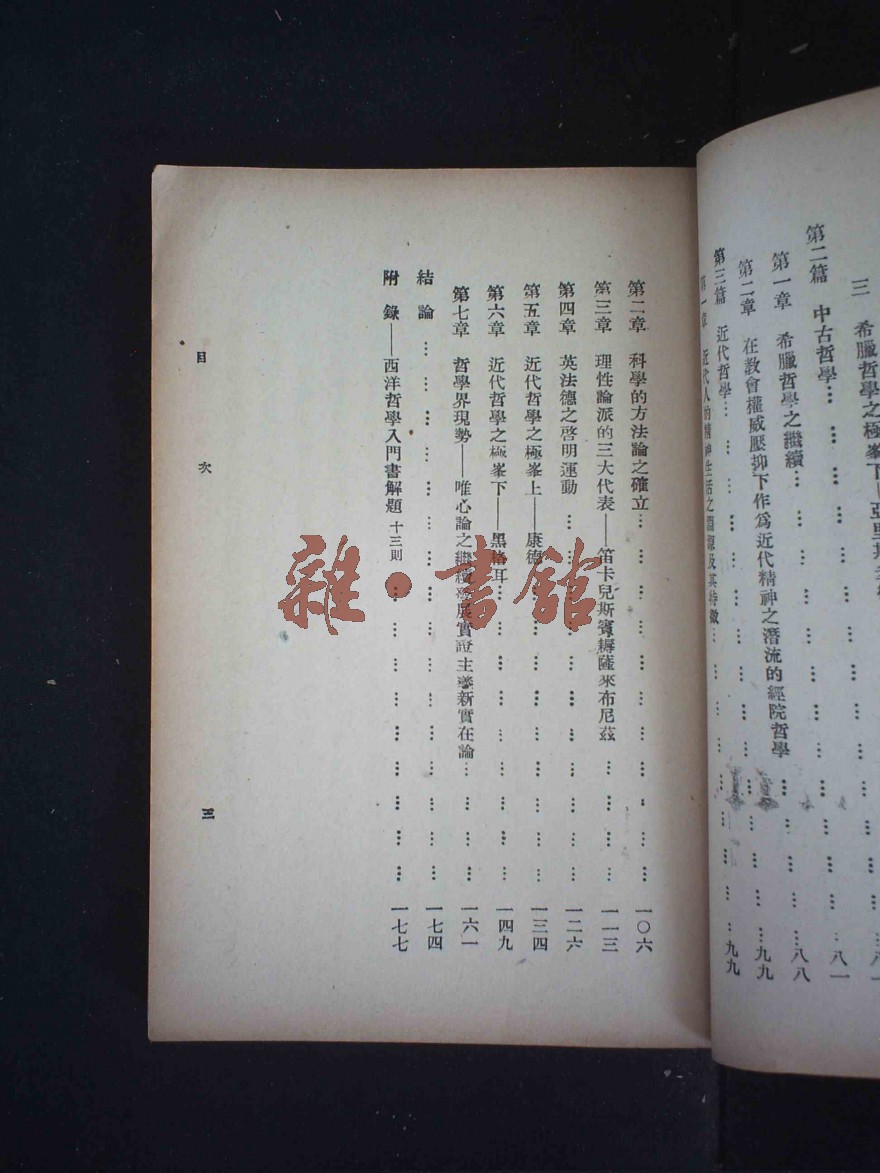 三 希臘哲學之極峯下—亞里斯 … 八一
第二篇 中古哲學… … … … … … … … … … 八一
第一章 希臘哲學之繼續… … … … … … … … 八八
第二章 在教會權威壓抑下作爲近代精神之潛流的經院哲學 … … … … 九九
第三篇 近代哲學… … … … … … … … … … 九九
第一章 近代人的精神生活之淵源及其特徵… … … … …
第二章 科學的方法論之確立… … … … … … … … 一〇六
第三章 理性論派的三大代表——笛卡兒斯賓耨薩來布尼茲 … … … … 一一三
第四章 英法德之啓明運動 … … … … … … … … 一二六
第五章 近代哲學之極峯上——康德 … … … … … … … 一三四
第六章 近代哲學之極峯下——黑格耳… … … … … … … 一四九
第七章 哲學界現勢——唯心論之繼續發展實證主義新實在論… … … … 一六一
結論 … … … … … … … … … … … … … 一七四
附錄——西洋哲學入門書解題 十三則 … … … … … … … … 一七七
目次
三
雜·書館